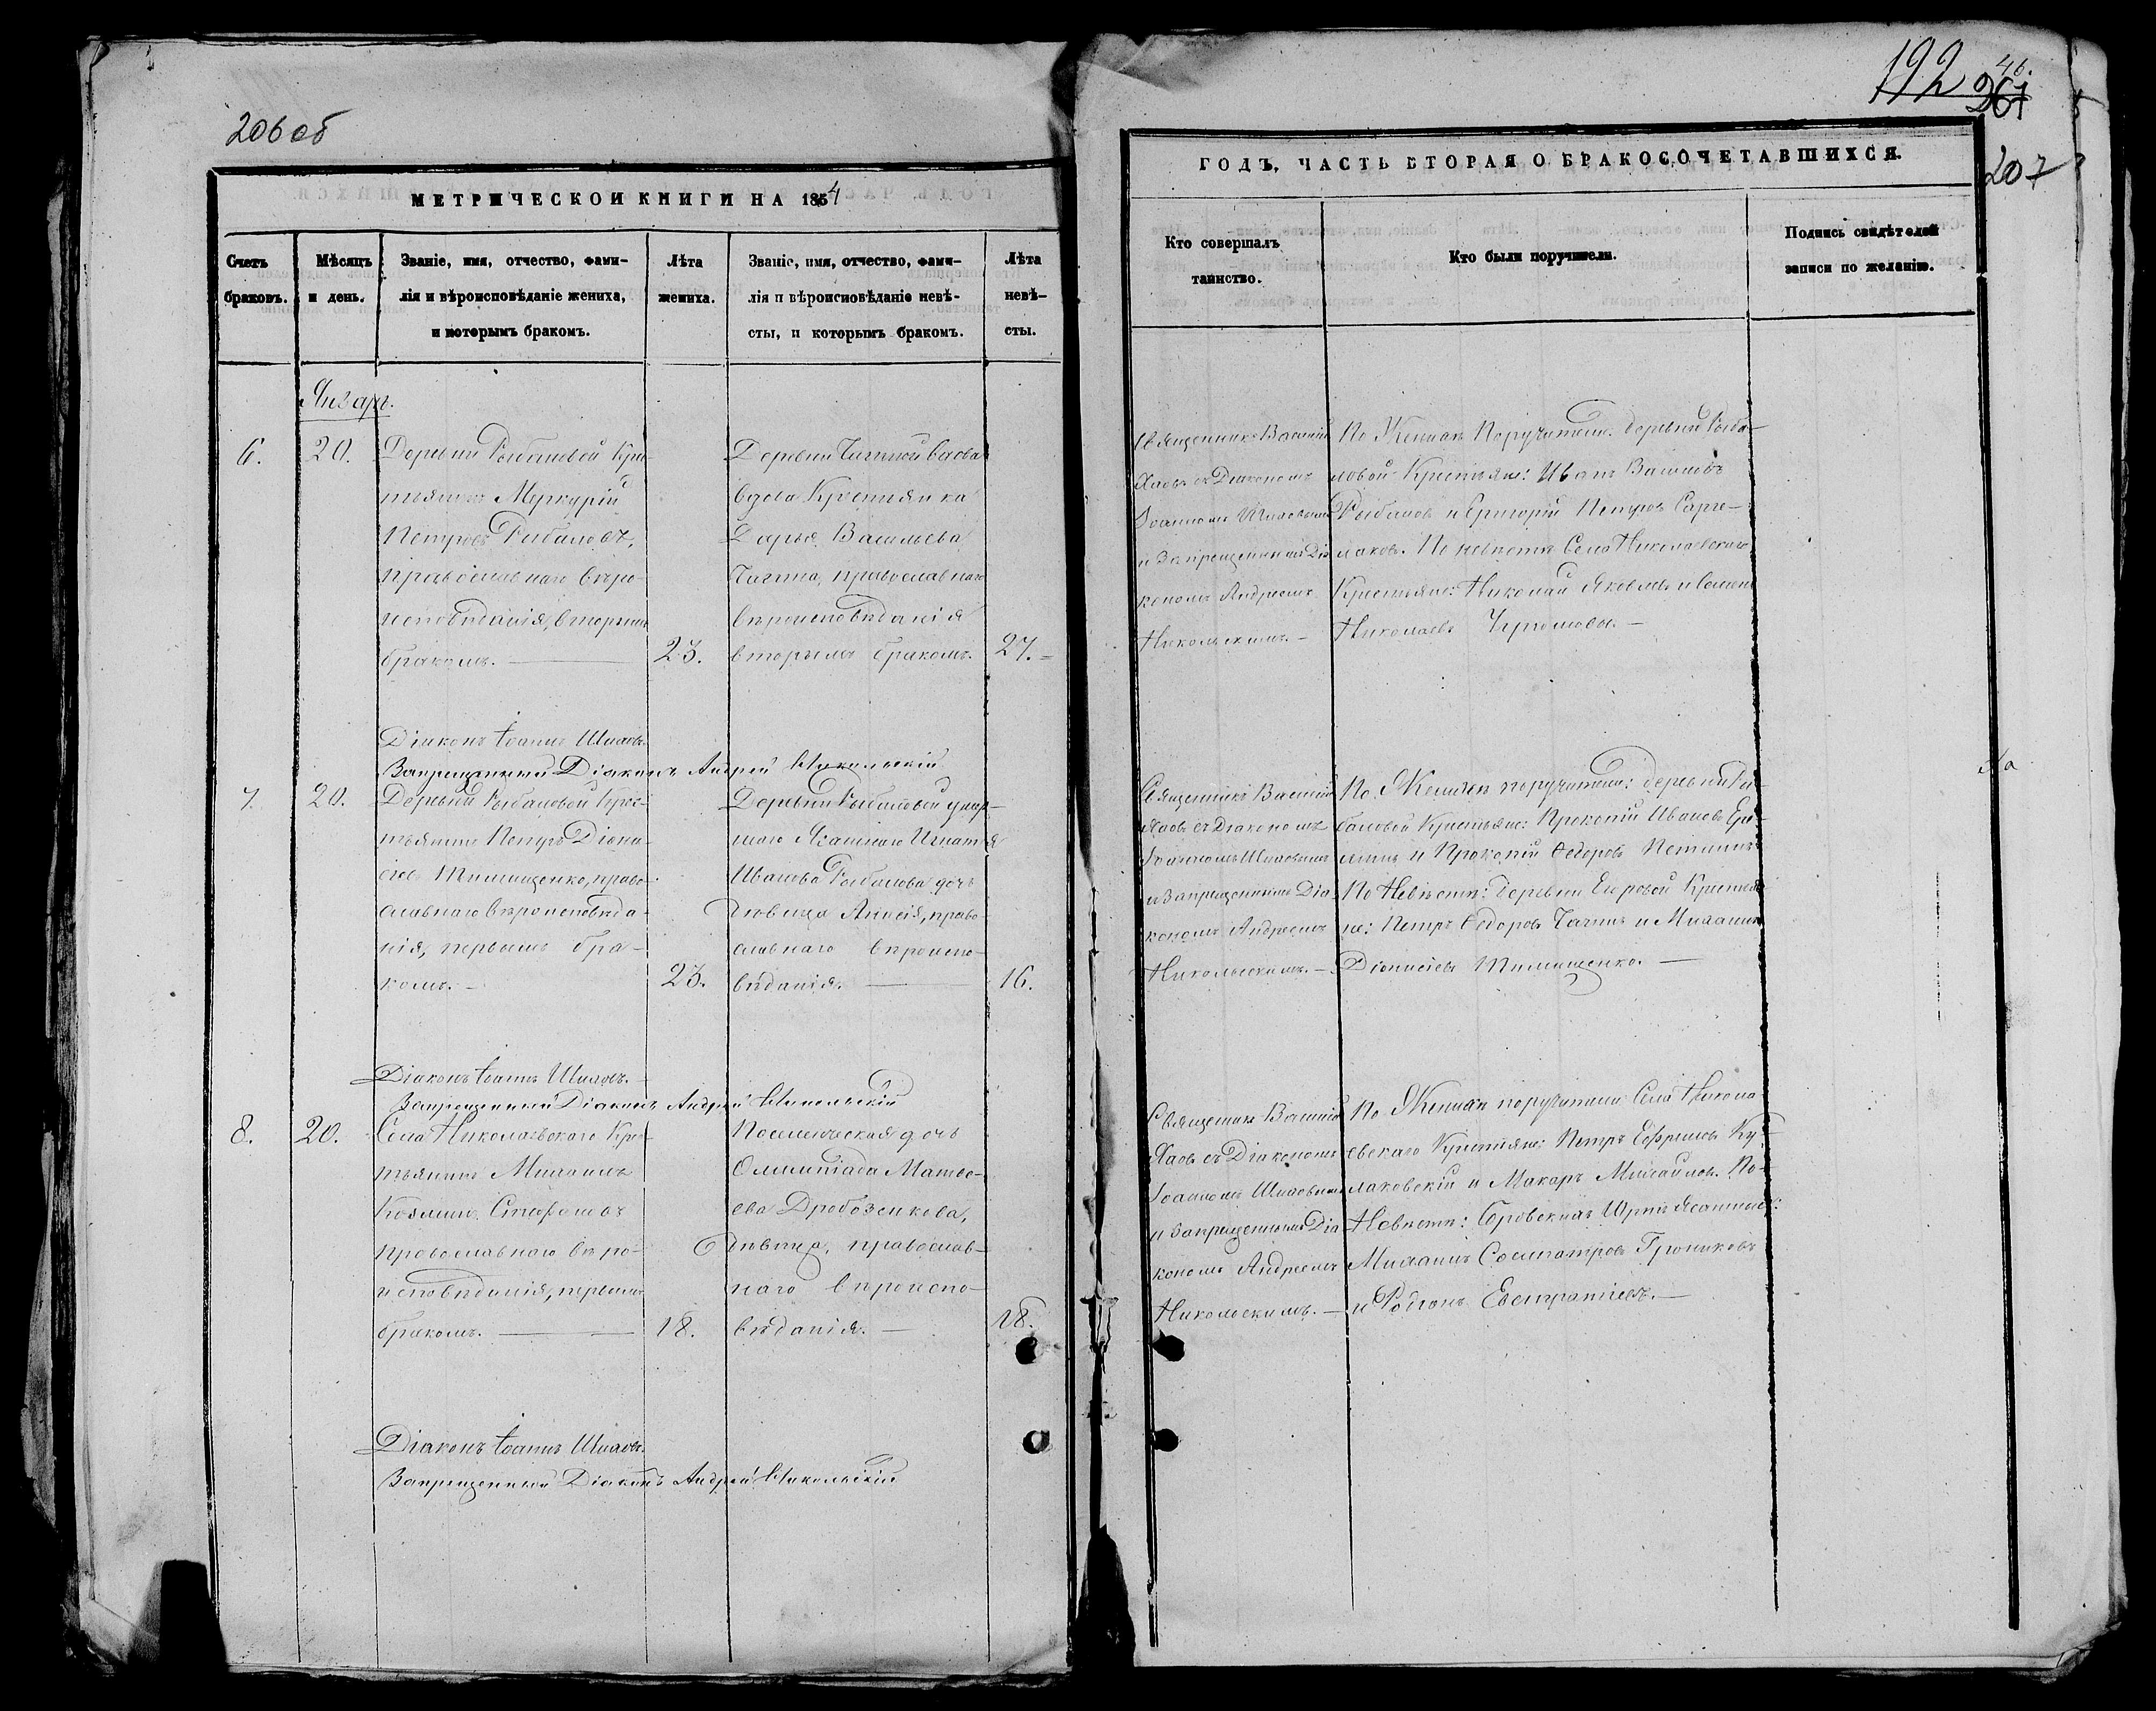 206 об
МЕТРИЧЕСКОЙ КНИГИ НА 1854
Счетъ браковъ.
Мѣсяцъ и день.
Званіе, имя, отчество, фами-
лія и вѣроисповѣданіе жениха,
и которымъ бракомъ.
Лѣта жениха.
Званіе, имя, отчество, фами-
лія и вѣроисповѣданіе невѣ-
сты, и которымъ бракомъ.
Лѣта невѣ-
сты.
Январь.
6.
20.
Деревни Рыбаловой Кре-
стьянинъ Меркурій
Петровъ Рыбаловъ,
православнаго вѣро-
исповѣданія, вторымъ
бракомъ.
23.
Деревни
вдова Крестьянка
Дарья Васильева
Чагина, православнаго
вѣроисповѣданія
вторымъ бракомъ.
27.
Діаконъ Іоаннъ Шиловъ.
Запрещенный Діаконъ Андрей Никольскій
7.
20.
Деревни Рыбаловой Крес-
тьянинъ Петръ Діони-
сіевъ Тимищенко, право-
славнаго вѣроисповѣда-
нія, первымъ бра-
комъ.
23.
Деревни Рыбаловой умер-
шаго Ясашнаго Игнатія
Иванова Рыбалова дочь
дѣвица Анисія, право-
славнаго вѣроиспо-
вѣданія.
16.
Діаконъ Іоаннъ Шиловъ.
Запрещенный Діаконъ Андрей Никольскій
8.
20.
Села Николаевскаго Кре-
стьянинъ Михаилъ
Козминъ
православнаго вѣро-
исповѣданія, первымъ
бракомъ.
18.
Поселенческая дочь
Олимпіада Матѳе-
ева Дробозенкова,
дѣвица, православ-
наго вѣроиспо-
вѣданія.
18.
Діаконъ Іоаннъ Шиловъ.
Запрещенный Діаконъ Андрей Никольскій
192
46.
261
207
ГОДЪ, ЧАСТЬ ВТОРАЯ О БРАКОСОЧЕТАВШИХСЯ.
Кто совершалъ
таинство.
Кто были поручители.
Подпись свидѣтелей
записи по желанію.
Священникъ Василій
Хаовъ съ Діакономъ
Іоанномъ Шиловымъ
и Запрещеннымъ Діа-
кономъ Андреемъ
Никольскимъ.
По Женихѣ Поручители: деревни Рыба-
ловой Крестьяне: Иванъ
Рыбаловъ и Григорій Петровъ
По невѣстѣ Села Николаевскаго
Крестьяне: Николай Яковлевъ и Семенъ
Николаевъ
Священникъ Василій
Хаовъ съ Діакономъ
Іоанномъ Шиловымъ
и Запрещеннымъ Діа-
кономъ Андреемъ
Никольскимъ.
По Женихѣ поручители: деревни Ры-
баловой Крестьяне: Прокопій Ивановъ
и Прокопій Ѳедоровъ
По Невѣстѣ: деревни Егоровой Крестья-
не: Петръ Ѳедоровъ Чагинъ и Михаилъ
Діонисіевъ Тимищенко.
Священникъ Василій
Хаовъ съ Діакономъ
Іоанномъ Шиловымъ
и Запрещеннымъ Діа-
кономъ Андреемъ
Никольскимъ.
По Женихѣ поручители Села Никола-
евскаго Крестьяне: Петръ Ефремовъ Ку-
лаковскій и Макаръ Михайловъ. По
Невѣстѣ:
Михаилъ Сосипатровъ
и Родіонъ Евстратіевъ.